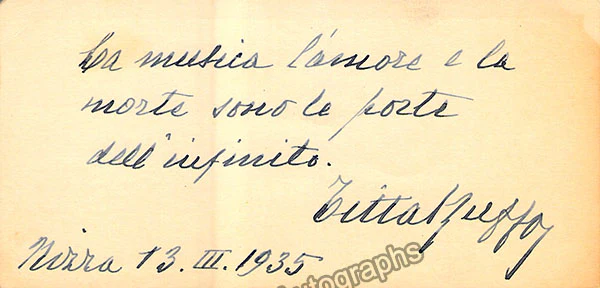 La musica l'amore e la
morte sono le porte
dell'infinito.
Titta Ruffo
Nizza 13.III.1935
utographs